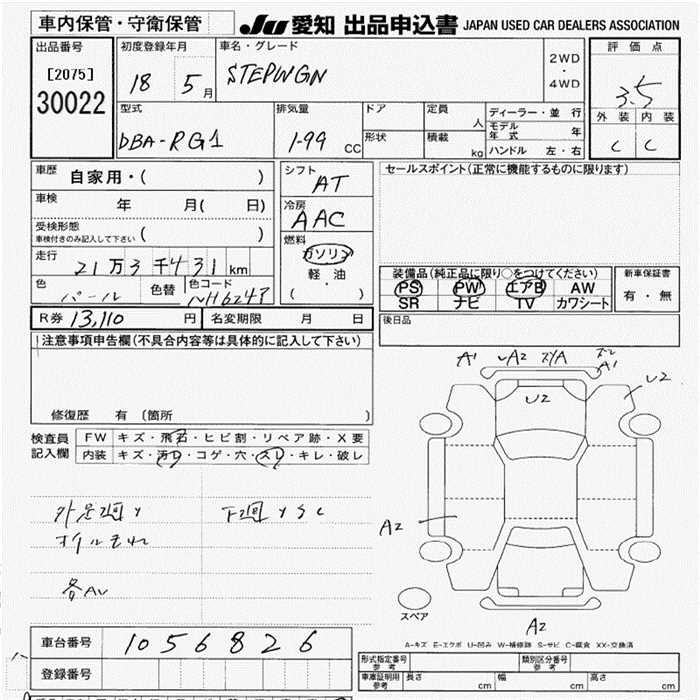 車内保管・守衛保管
JU 愛知 出品申込書 JAPAN USED CAR DEALERS ASSOCIATION
出品番号
[2075]
30022
初度登録年月
18 5月
車名・グレード
STEPWGN
2WD
・
4WD
評価点
3.5
外装 内装
C C
型式
DBA-RG1
排気量
1-99 CC
ドア
形状
定員 人
積載 kg
ディーラー・並行
モデル年式 年
ハンドル 左・右
車歴 自家用・( )
車検 年 月( 日)
受検形態
車検付きのみ記入して下さい ( )
走行 21万3千431km
色 パール 色替 色コード NH624P
シフト AT
冷房 AAC
燃料
ガソリン
軽油
( )
セールスポイント(正常に機能するものに限ります)
装備品(純正品に限り○をつけてください)
PS PW エアB AW
SR ナビ TV カワシート
新車保証書
有・無
R券 13,110 円 名変期限 月 日
後日品
注意事項申告欄(不具合内容等は具体的に記入して下さい)
修復歴 有 〔箇所 〕
検査員記入欄
FW キズ・飛石・ヒビ割・リペア跡・X要
内装 キズ・汚れ・コゲ・穴・スレ・キレ・破レ
下廻 サ S C
オイルもれ
各AU
A1 UA2 A1
U2
U2
A2
スペア
A2
A-キズ E-エクボ U-凹み W-補修跡 S-サビ C-腐食 XX-交換済
車台番号 1056826
登録番号
形式指定番号 参考
類別区分番号 参考
車庫証明用 参考 長さ cm 幅 cm 高さ cm